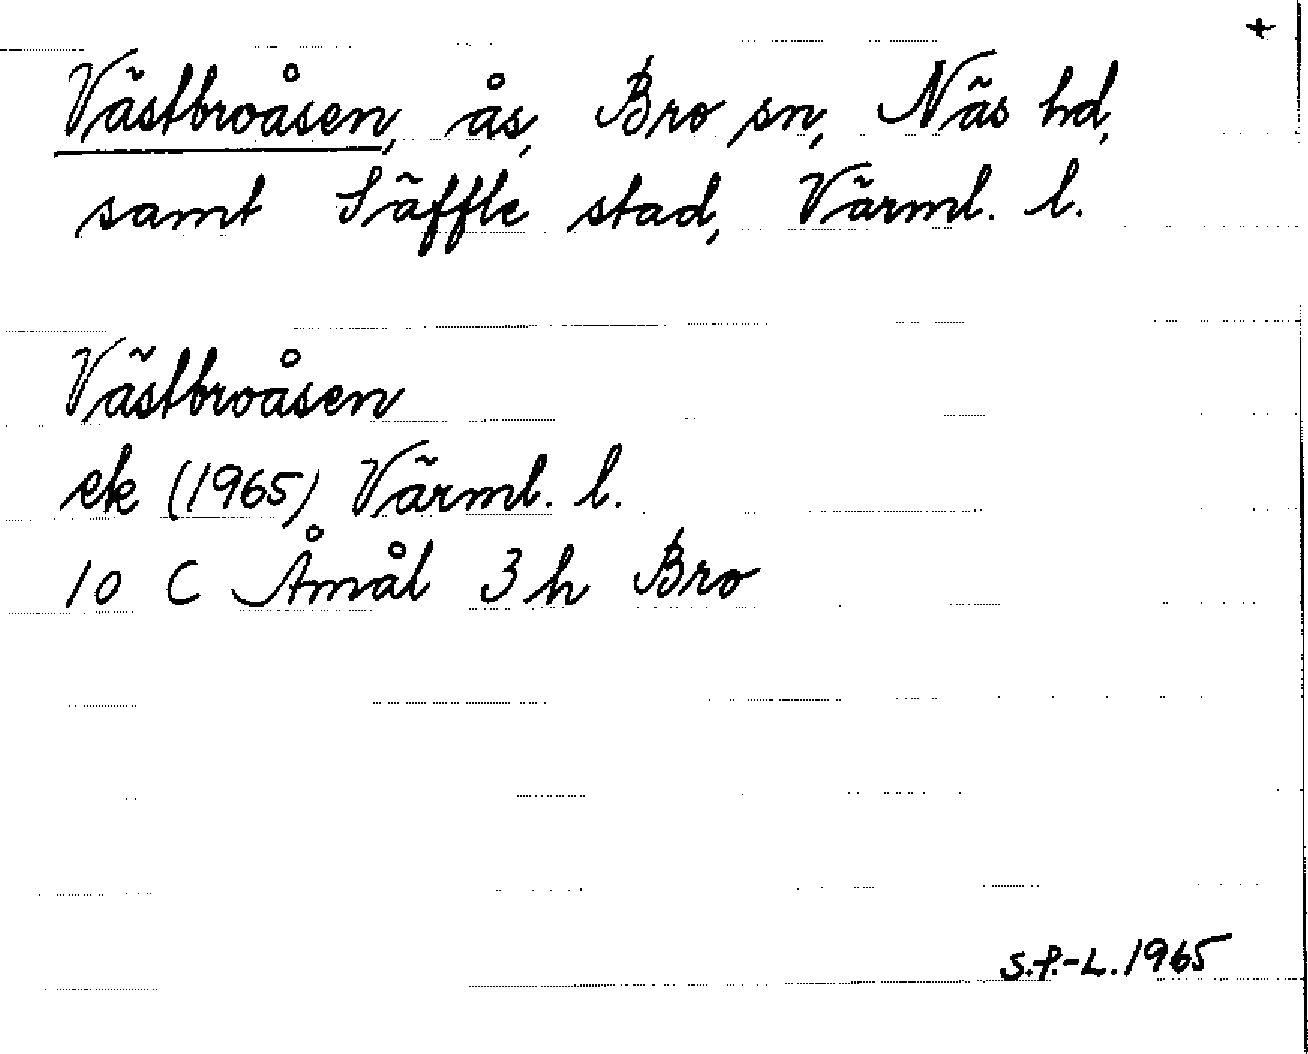 +
Västbroåsen, ås, Bro sn, Näs hd,
samt Säffle stad, Värml. l.
Västbroåsen
ek (1965) Värml. l.
10 C Åmål 3 h Bro
S.P.-L. 1965